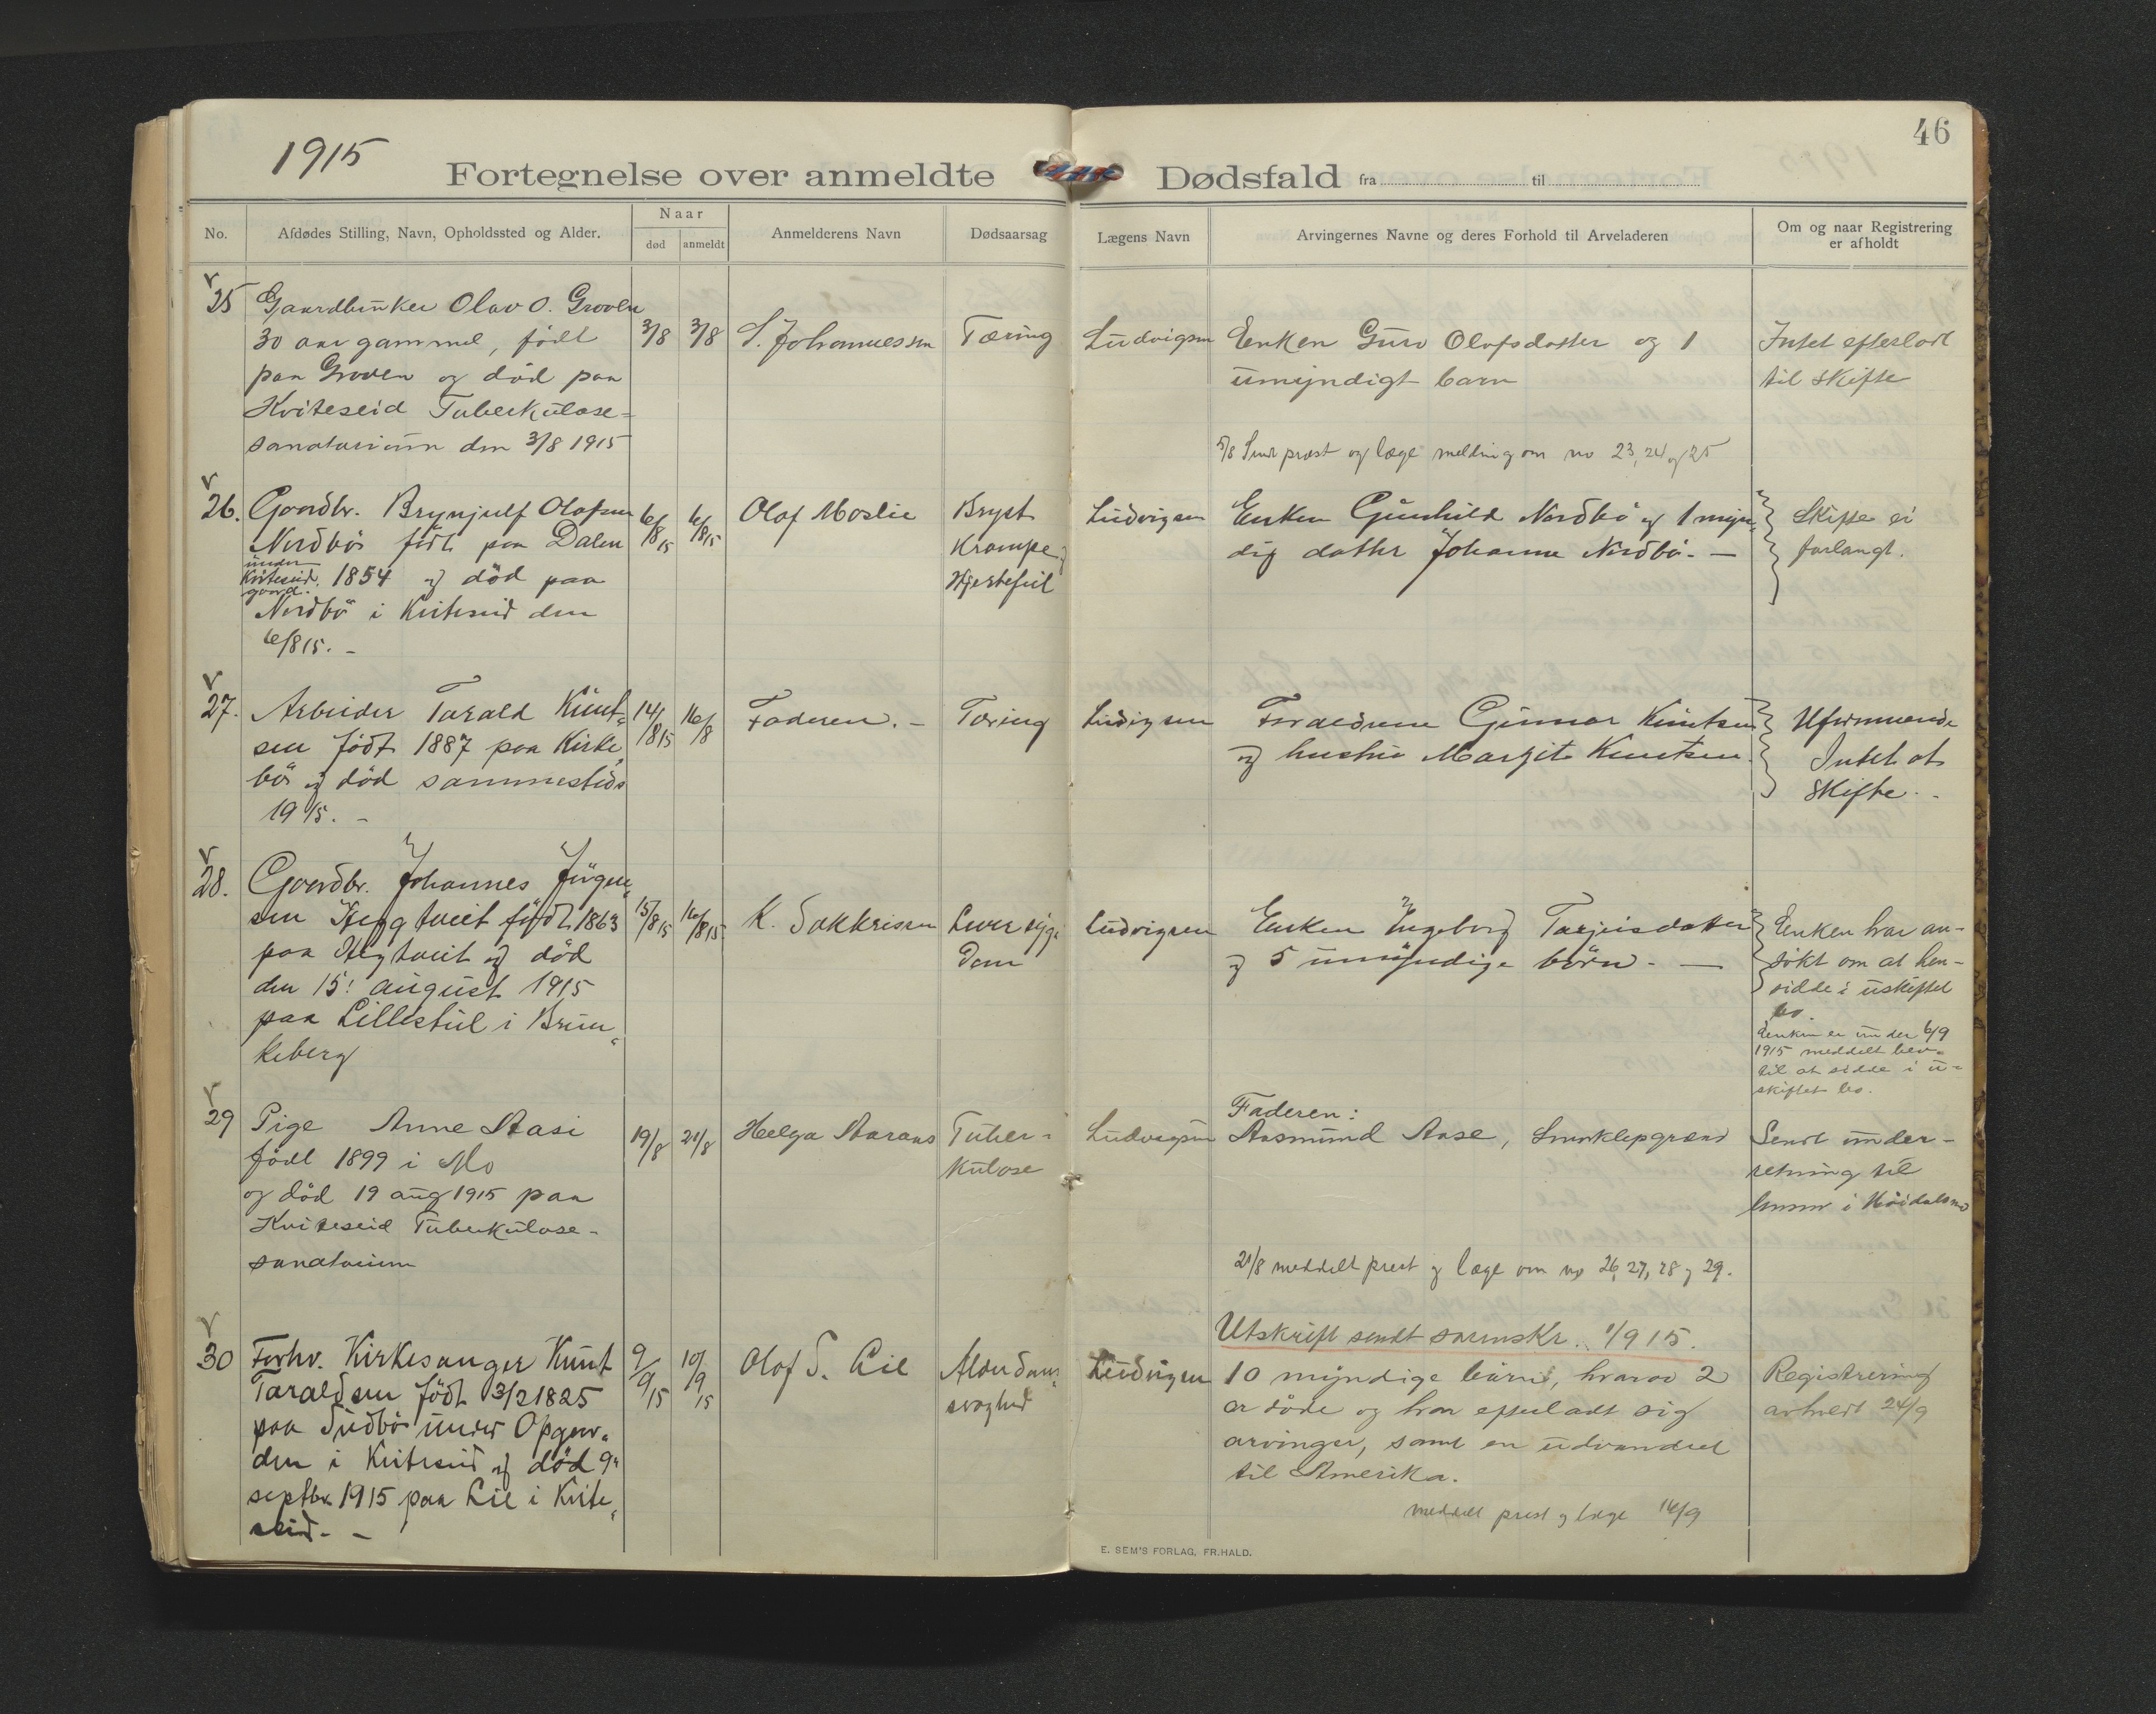 1915
46
Fortegnelse over anmeldte Dødsfald fra til
No.
Afdødes Stilling, Navn, Opholdssted og Alder.
Naar
død
anmeldt
Anmelderens Navn
Dødsaarsag
Lægens Navn
Arvingernes Navne og deres Forhold til Arveladeren
Om og naar Registrering
er afholdt
25
Gaardbruker Olav O. Groven
30 aar gammel, født
paa Groven og död paa
Kviteseid Tuberkulose-
sanatorium den 3/8 1915
3/8
3/8
S. Johannessen
Tæring
Ludvigsen
Enken Guro Olafsdatter og 1
umyndigt barn
Intet efterladt
til skifte
5/8 Sendt prest og læge melding om no 23, 24 og 25
26.
Gaardbr. Brynjulf Olafsen
Nordbö födt paa Dalen
under
Kviteseid
gaard.
1854 og död paa
Nordbö i Kviteseid den
6/8 15. -
6/8 15
6/8 15
Olaf Moslie
Bryst
Krampe og
Hjertefeil
Ludvigsen
Enken Gunhild Nordbö og 1 myn-
dig datter Johanne Nordbö. -
Skifte ei
forlangt.
27.
Arbeider Tarald Knut-
sen födt 1887 paa Kirke-
bö og död sammesteds
1915. -
14/8 15
16/8
Faderen. -
Tæring
Ludvigsen
Foraldrene Gunnar Knutsen
og hustru Margit Knutsen.
Uformuende
Intet at
skifte. -
28.
Gaardbr. Johannes Jörgen-
sen Heggtveit födt 1863
paa Hegtveit og död
den 15! august 1915
paa Lillestul i Brun-
keberg
15/8 15
16/8 15
K. Sakkrissen
Leversyge
dom
Ludvigsen
Enken Ingeborg Tarjeisdatter
og 5 umyndige börn. -
Enken har an-
søkt om at hen-
sidde i uskiftet
bo.
Enken er under 6/9
1915 meddelt bev.
til at sidde i u-
skiftet bo.
29
Pige Anne Aasi
født 1899 i Mo
og död 19 aug 1915 paa
Kviteseid Tuberkulose-
sanatorium
19/8
21/8
Helga Aarans
Tuber-
kulose
Ludvigsen
Faderen:
Aasmund Aase, Smørklepgrend
Sendt under-
retning til
lensm i Höidalsmo
21/8 meddelt prest og læge om no 26, 27, 28 og 29.
Utskrift sendt sorenskr. 1/9 15.
30
Forhv. Kirkesanger Knut
Taraldsen födt 13/2 1825
paa Sudbö under Opgaar-
den i Kviteseid og död 9.
septbr. 1915 paa Lie i Kvite-
seid. -
9/9 15
10/9 15
Olaf S. Lie
Alderdoms
svaghed
Ludvigsen
10 myndige börn, hvorav 2
er döde og har efterladt sig
arvinger, samt en udvandret
til Amerika.
Registrering
avholdt 24/9
meddelt prest og læge 14/9
E. SEM'S FORLAG, FR.HALD.